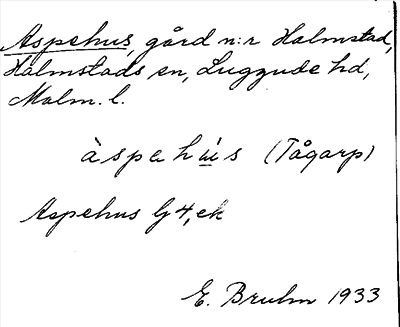 Aspehus, gård n:r Halmstad,
Halmstads sn, Luggude hd,
Malm. l.
àspehu̇s (Tågarp)
Aspehus Gj 4, ek
E. Bruhn 1933